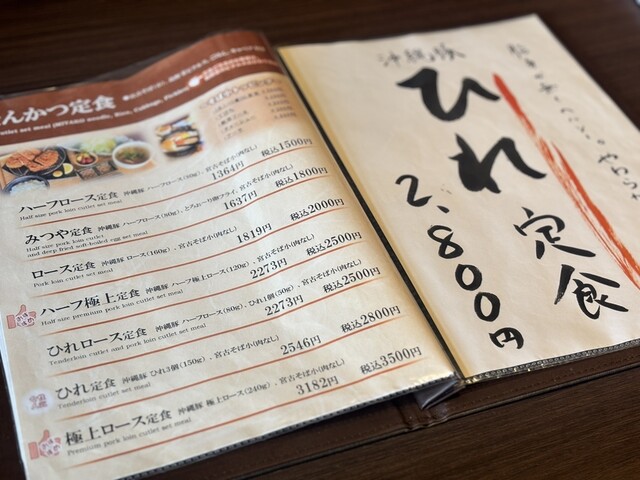 んかつ定食
ハーフロース定食 沖縄豚 ハーフロース(80g)、宮古そば小(肉なし)
Half size pork loin cutlet set meal
1364円 税込1500円
みつや定食 沖縄豚 ハーフロース(80g)、とろおーり卵フライ、宮古そば小(肉なし)
Half size pork loin cutlet
and deep fried soft-boiled egg set meal
1637円 税込1800円
ロース定食 沖縄豚 ロース(160g)、宮古そば小(肉なし)
Pork loin cutlet set meal
1819円 税込2000円
ハーフ極上定食 沖縄豚 ハーフ極上ロース(120g)、宮古そば小(肉なし)
Half size premium pork loin cutlet set meal
2273円 税込2500円
ひれロース定食 沖縄豚 ハーフロース(80g)、ひれ1個(50g)、宮古そば小(肉なし)
Tenderloin cutlet and pork loin cutlet set meal
2273円 税込2500円
ひれ定食 沖縄豚 ひれ3個(150g)、宮古そば小(肉なし)
Tenderloin cutlet set meal
2546円 税込2800円
極上ロース定食 沖縄豚 極上ロース(240g)、宮古そば小(肉なし)
Premium pork loin cutlet set meal
3182円 税込3500円
沖縄豚
ひれ
定食
2,800円